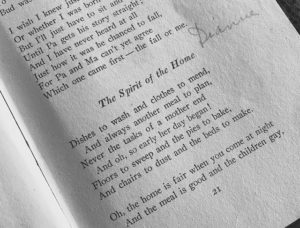 I wish I knew just
Or whether I was born
But I'll just have to sit and
Until Pa gets his story straight;
And I have never heard at all
Just how it was he chanced to fall,
For Pa and Ma can't yet agree
Which one came first—the fall or me.
The Spirit of the Home
Dishes to wash and clothes to mend,
And always another meal to plan,
Never the tasks of a mother end
And oh, so early her day began!
Floors to sweep and the pies to bake,
And chairs to dust and the beds to make.
Oh, the home is fair when you come at night
And the meal is good and the children gay,
21